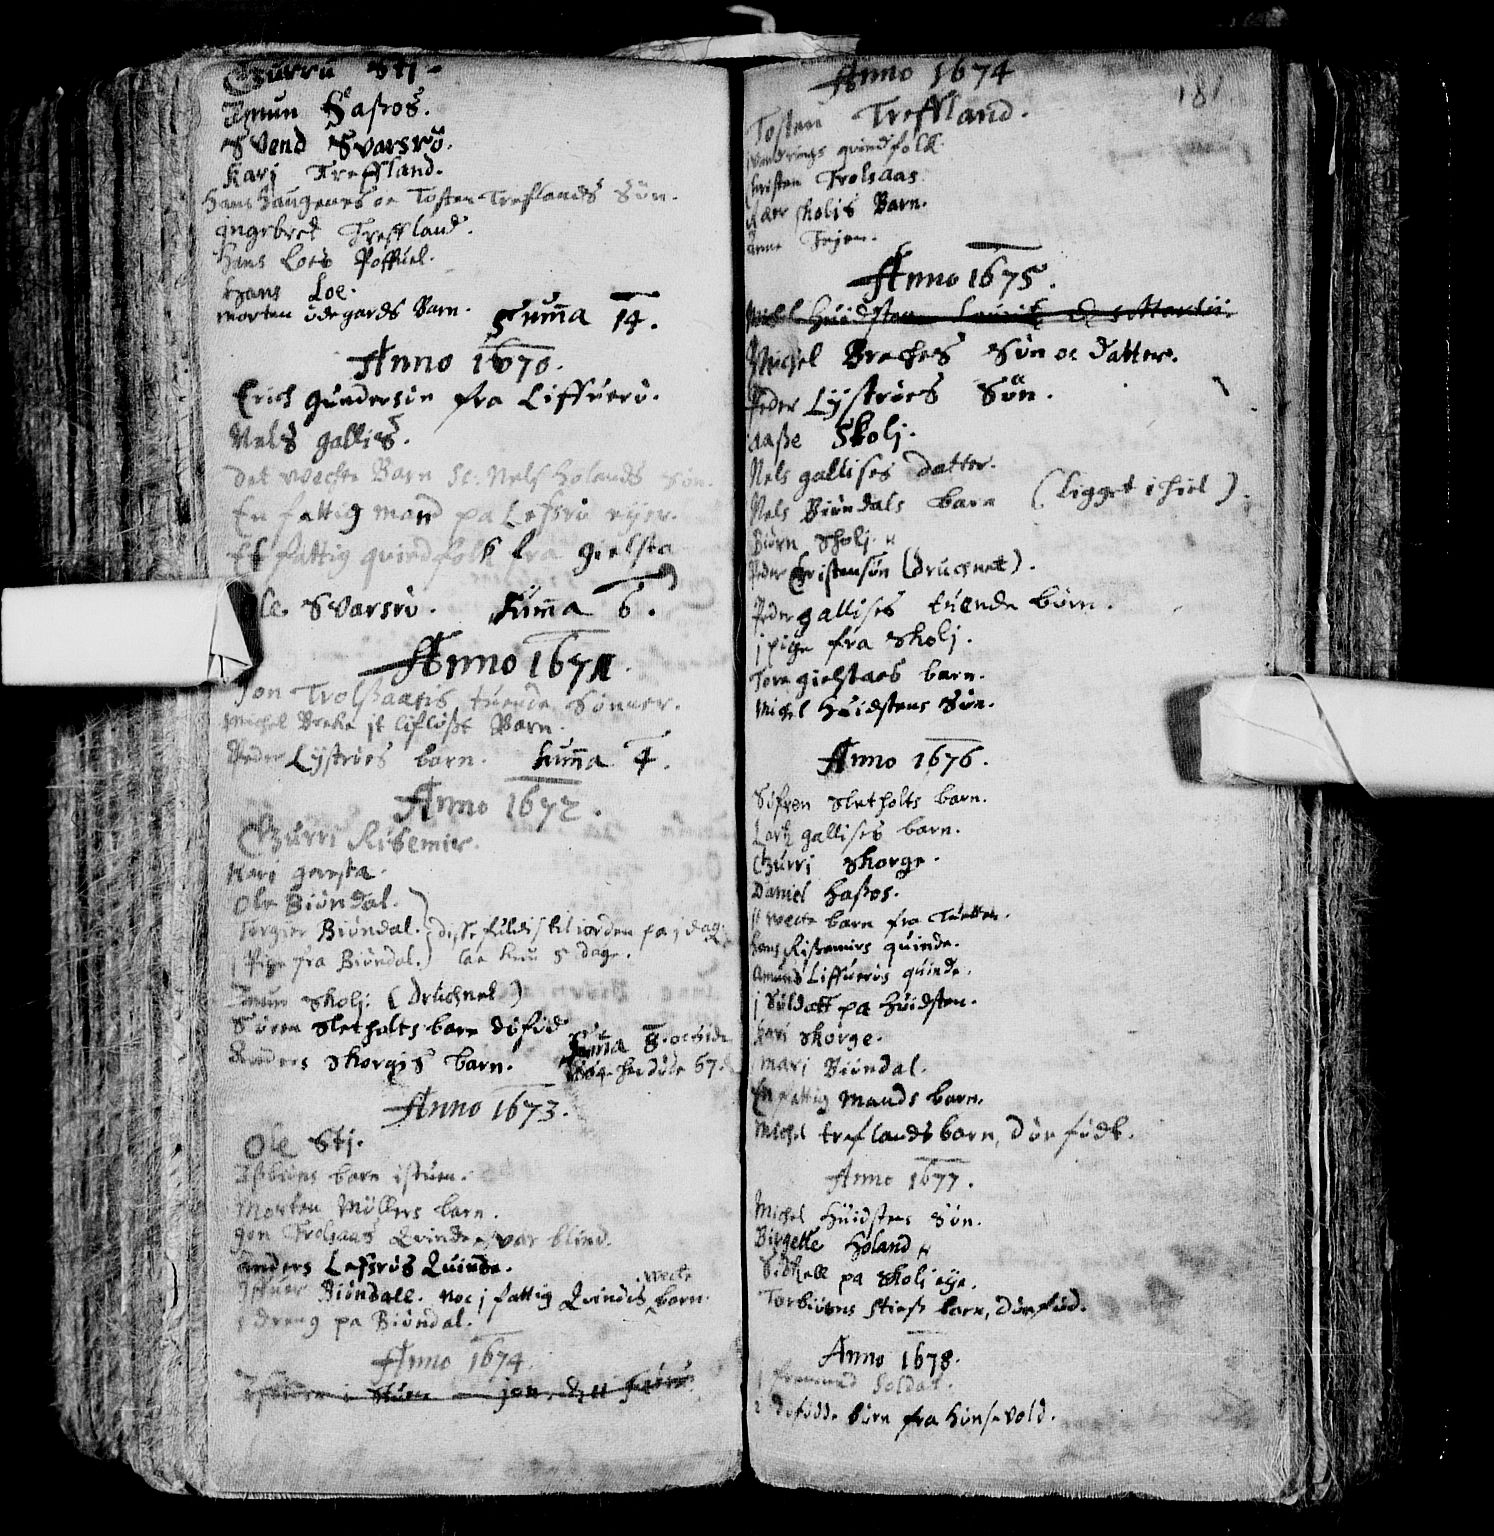 Gurru Stj
Jmun Haßos.
Svend Svarsrö.
Karj Treffland.
Hans Haugenes oc Tosten Treflands Sön.
ingebret Treffland.
Hans Loes
Hans Loe.
morten ödegards Barn. Suma 14.
Anno 1670.
Erich gundersön fra Liffuerö.
Nels gallies.
Det wechte Barn sc: Nels Holands Sön.
En fattig mand pa Lefsrö eyer.
Et fattig qvindfolk fra gielsta
Ole Svarsrö. Suma 6.
Anno 1671.
Jon Trolßaasis tuende Sönner.
Michel Breke jt lifløst Barn.
Peder Lyströes barn. Suma 4.
Anno 1672.
Gurri Risemier.
Kari gersta.
Ole Biöndal.
Torgier Biöndal. disse fuldis til iorden pa j dag.
j Pige fra Biöndal. laa kun 5 dage.
Jmun Skolj. (Druchnet)
Sören Sletholts barn döföd
Anders Skorgis barn. Suma 8. oc sid
döde 67.
Anno 1673.
Ole Stj.
barn i stuen.
Morten Möllers barn.
gon Trolsaas Qvinde, var blind.
Anders Lefsrös Quinde.
Biöndall. noc j fattig Qvindis wecte barn.
j dreng pa Biöndal.
Anno 1674.
181
Anno 1674
Tosten Treffland.
qvindfolk.
Christen Trolsaas.
Skolis Barn.
Anne
Anno 1675.
Michel Huidsten
Michel Brekes Sön oc datter.
Peder Lyströes Sön.
Aaße Skolj.
Nels gallises datter.
Nels Biöndals barn (ligget ihiel).
Biörn Skolj.
Peder Christensön (druchnet).
Peder gallises tuende börn.
j pige fra Skolj.
Tore gielstaes barn.
Michel Huidstens Sön.
Anno 1676.
Söfren Sletholts barn.
gallises barn.
Gurri Skorge.
Daniel Haßos.
wecte barn fra
Hans Rißemiers quinde.
Amund Liffuerös quinde.
j Soldatt pa Huidsten.
Kari Skorge.
mari Biöndal.
En fattig mands barn.
Michel treflands barn, Dön födt.
Anno 1677.
Michel Huidstens Sön.
Birgette Holand
Sidsell pa Skolj eye.
Torbiörns barn, Dön föd.
Anno 1678.
j fremmed Soldat.
2 döfödde börn fra Hönsevold.